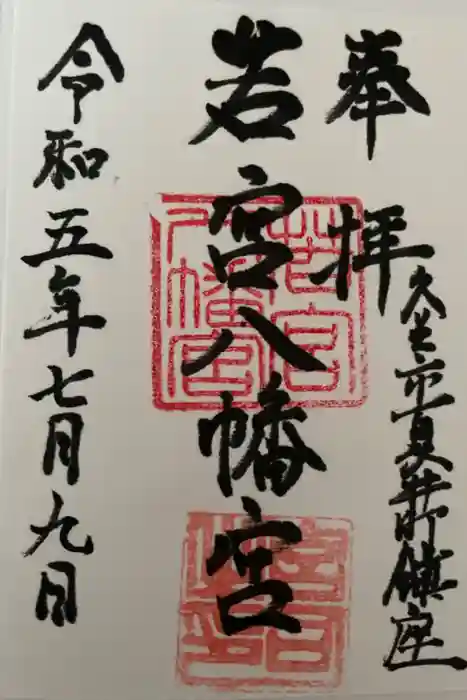 奉拝
市
町鎮座
若宮八幡宮
若宮
八幡宮
宮司
之印
令和五年七月九日